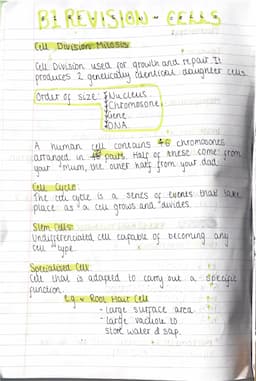 B1 REVISION - CELLS
Cell Division Mitosis
Cell Division used for growth and repair. It
produces 2 genetically identical daughter cells
Order of size: Nucleus
Chromosone
Gene
DNA
A human cell contains 46 chromosones
arranged in pairs. Half of these come from
your mum, the other half from your dad.
Cell Cycle
The cell cycle is a series of events that take
place as a cell grows and divides.
Stem Cells
Undifferentiated cell capable of becoming any
cell type.
Specialised Cell
Cell that is adapted to carry out a specific
function.
E.g. Root Hair Cell
- large surface area
- large vacuole to
store water & sap.